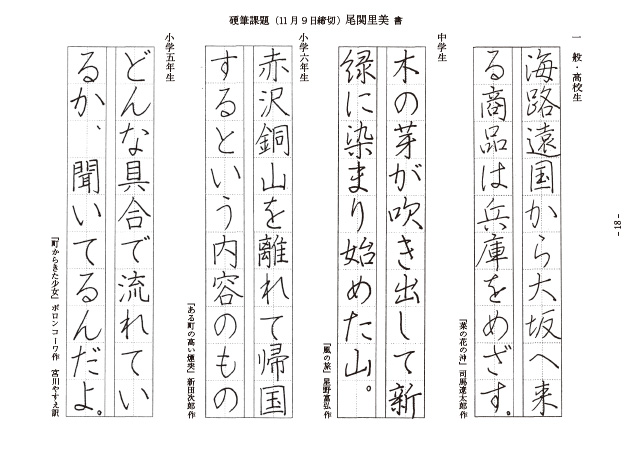 硬筆課題（11月9日締切）尾関里美 書
一般・高校生
海路遠国から大坂へ来
る商品は兵庫をめざす。
『菜の花の沖』司馬遼太郎 作
中学生
木の芽が吹き出して新
緑に染まり始めた山。
『風の旅』星野富弘 作
小学六年生
赤沢銅山を離れて帰国
するという内容のもの
『ある町の高い煙突』新田次郎 作
小学五年生
どんな具合で流れてい
るか、聞いてるんだよ。
『町からきた少女』ボロンコーワ作 宮川やすえ訳
- 18 -